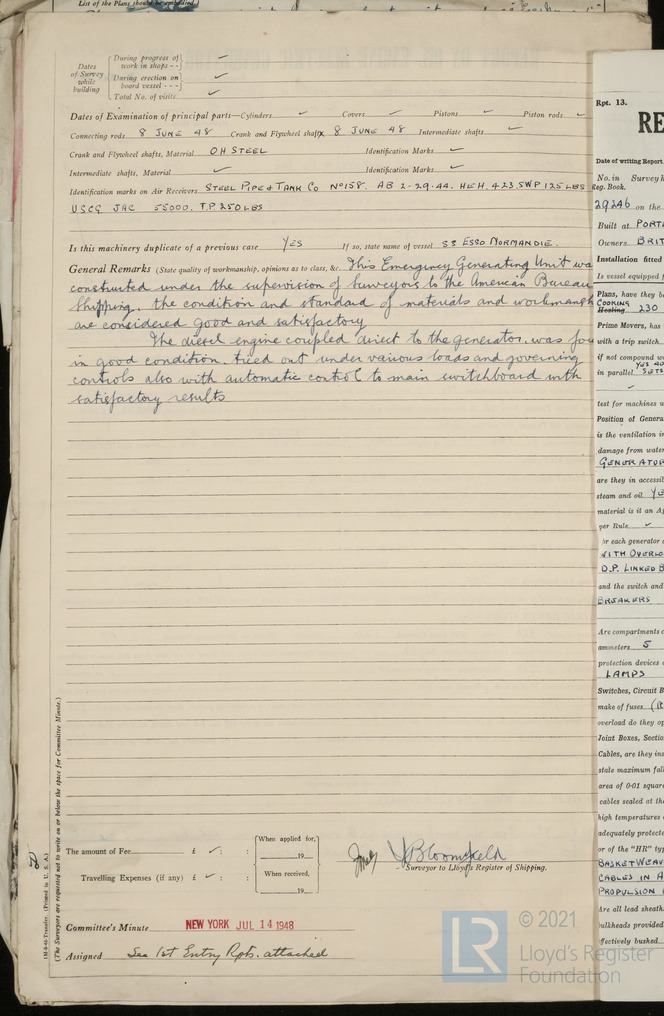 List of the Plans should be embodied.)
Dates of Survey while building
During progress of work in shops - -
During erection on board vessel - - -
Total No. of visits
Dates of Examination of principal parts—Cylinders ✓ Covers ✓ Pistons ✓ Piston rods ✓
Connecting rods 8 JUNE 48 Crank and Flywheel shafts 8 JUNE 48 Intermediate shafts ✓
Crank and Flywheel shafts, Material OH STEEL Identification Marks ✓
Intermediate shafts, Material ✓ Identification Marks ✓
Identification marks on Air Receivers STEEL PIPE & TANK CO Nº158. AB 2-29-44. HEH. 423.SWP 125 LBS
USCG JAC 55000. T.P. 250LBS
Is this machinery duplicate of a previous case YES If so, state name of vessel SS ESSO NORMANDIE.
General Remarks (State quality of workmanship, opinions as to class, &c. This Emergency Generating Unit wa
constructed under the supervision of Surveyors to the American Bureau
Shipping, the condition and standard of materials and workmansh
are considered good and satisfactory
The diesel engine coupled direct to the generator, was fou
in good condition, tried out under various loads and governing
controls also with automatic control to main switchboard with
satisfactory results
(The Surveyors are requested not to write on or below the space for Committee Minute.)
1M-9-46-Transfer. (Printed in U.S.A.)
The amount of Fee £ ✓ : :
When applied for,
19
Travelling Expenses (if any) £ ✓ : :
When received,
19
J Bloomfield
Surveyor to Lloyd's Register of Shipping.
Committee's Minute NEW YORK JUL 14 1948
Assigned See 1st Entry Rpts. attached
Rpt. 13.
RE
Date of writing Report
No. in Survey h
Reg. Book.
29246 on the
Built at PORTL
Owners BRIT
Installation fitted
Is vessel equipped f
Plans, have they be
COOKING
Heating 230
Prime Movers, has
with a trip switch
if not compound w
in parallel
test for machines w
Position of Genera
is the ventilation in
damage from water
GENERATOR
are they in accessib
steam and oil YE
material is it an Ap
per Rule ✓
or each generator a
WITH OVERLO
D.P. LINKED B
and the switch and
BREAKERS
Are compartments c
ammeters 5
protection devices
LAMPS
Switches, Circuit B
make of fuses
overload do they op
Joint Boxes, Sectio
Cables, are they ins
state maximum fall
area of 0·01 square
cables sealed at the
high temperatures
adequately protecte
or of the "HR" typ
BASKET WEAV
CABLES IN A
PROPULSION
Are all lead sheath
bulkheads provided
effectively bushed
LR
© 2021
Lloyd's Register
Foundation